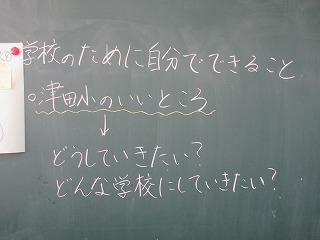 学校のために自分でできること
○津田小のいいところ
↓
どうしていきたい?
どんな学校にしていきたい?